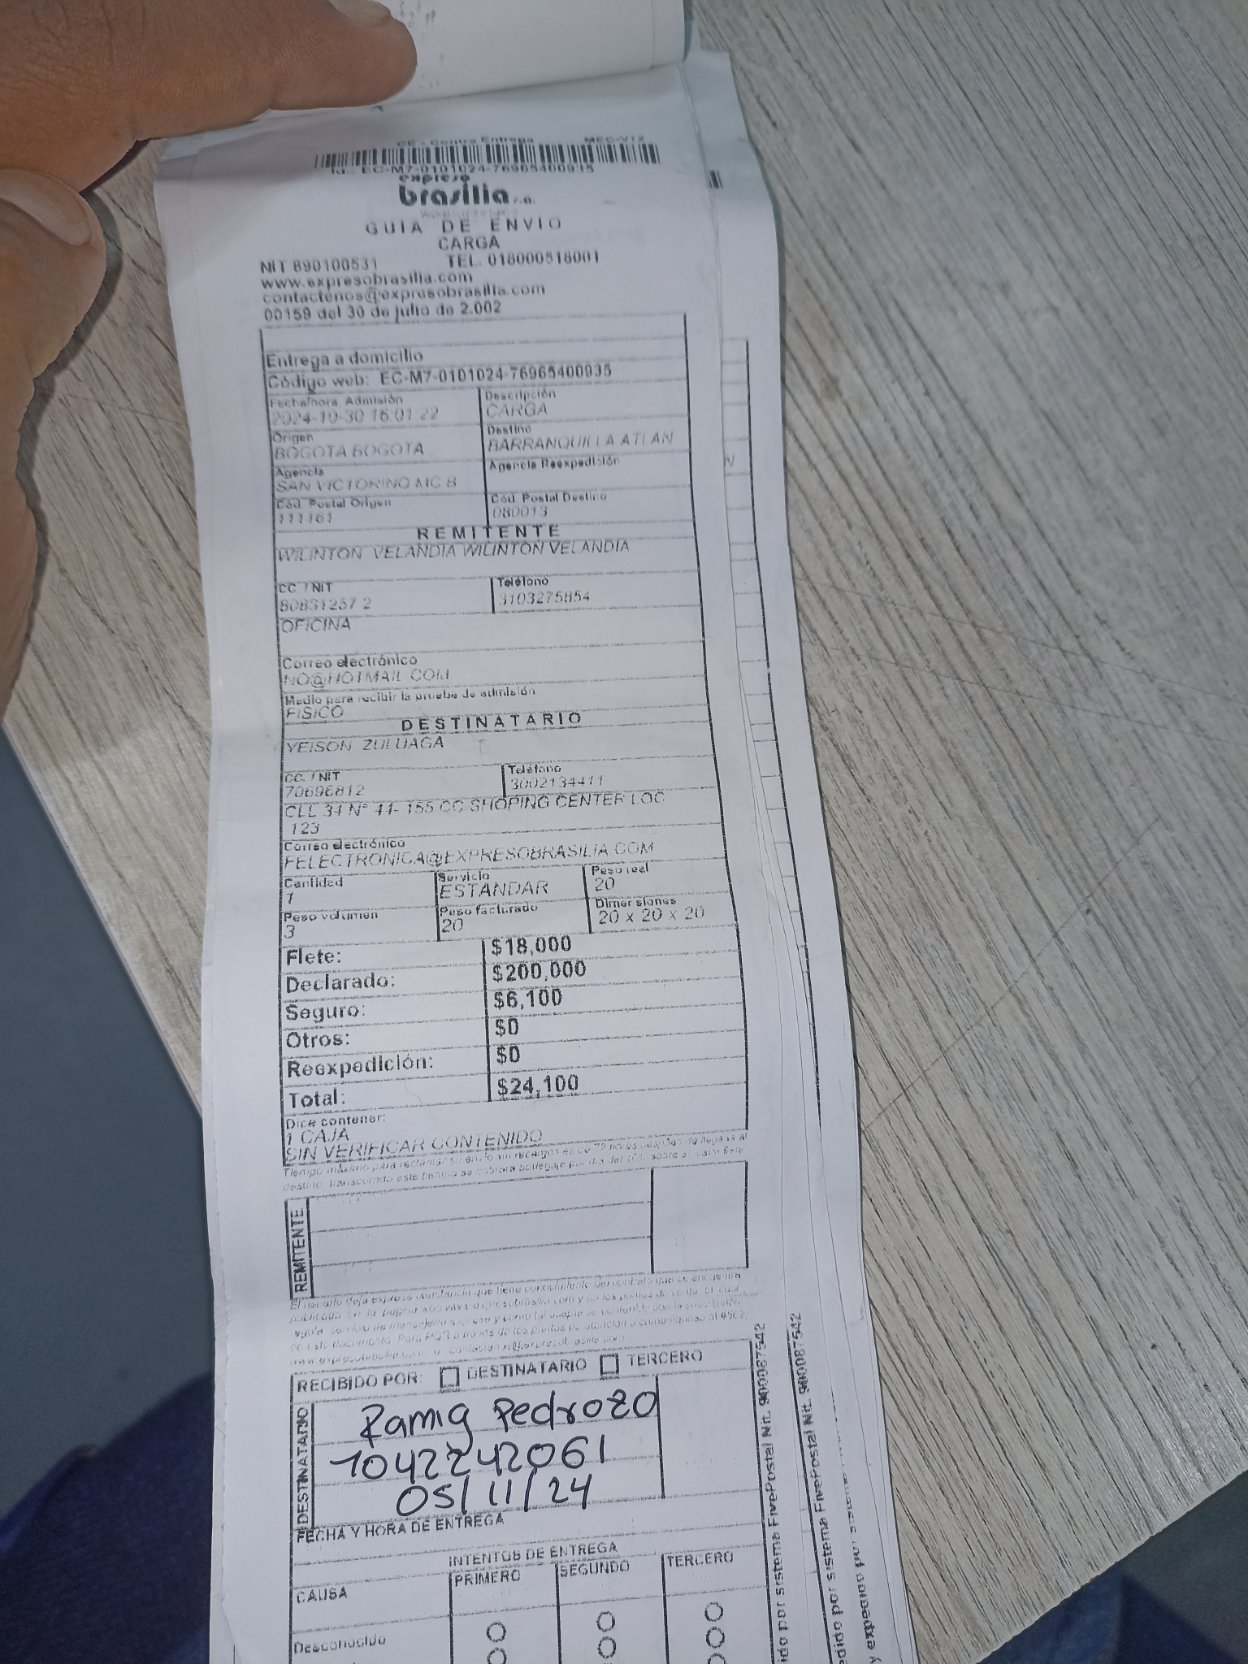 CE - Contra Entrega MEC-V12
Id.: EC-M7-0101024-76965400935
expreso
brasilia s.a.
GUIA DE ENVIO
CARGA
NIT 890100531 TEL. 018000518001
www.expresobrasilia.com
contactenos@expresobrasilia.com
00159 del 30 de julio de 2.002
Entrega a domicilio
Código web: EC-M7-0101024-76965400935
Fecha/hora Admisión Descripción
2024-10-30 16:01:22 CARGA
Origen Destino
BOGOTA BOGOTA BARRANQUILLA ATLAN
Agencia Agencia Reexpedición
SAN VICTORINO MC B
Cód. Postal Origen Cód. Postal Destino
111161 080013
REMITENTE
WILINTON VELANDIA WILINTON VELANDIA
CC. / NIT Teléfono
80831257 2 3103275854
OFICINA
Correo electrónico
NO@HOTMAIL.COM
Medio para recibir la prueba de admisión
FISICO
DESTINATARIO
YEISON ZULUAGA
CC. / NIT Teléfono
70696812 3002134411
CLL 34 N° 44- 155 CC SHOPING CENTER LOC
123
Correo electrónico
FELECTRONICA@EXPRESOBRASILIA.COM
Cantidad Servicio Peso real
1 ESTANDAR 20
Peso volumen Peso facturado Dimensiones
3 20 20 x 20 x 20
Flete: $18,000
Declarado: $200,000
Seguro: $6,100
Otros: $0
Reexpedición: $0
Total: $24,100
Dice contener:
1 CAJA
SIN VERIFICAR CONTENIDO
REMITENTE
RECIBIDO POR: DESTINATARIO TERCERO
DESTINATARIO
Pedrozo
1042242061
05/11/24
FECHA Y HORA DE ENTREGA
INTENTOS DE ENTREGA
CAUSA PRIMERO SEGUNDO TERCERO
Desconocido
por sistema FivePostal Nit. 900087542
por sistema FivePostal Nit. 900087542
y expedido por